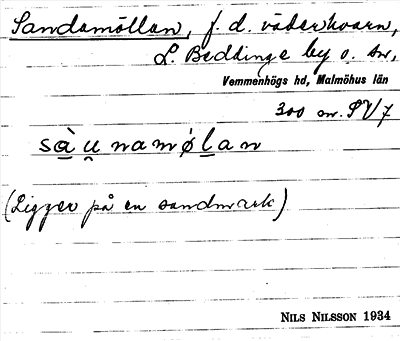 Sandamöllan, f. d. väderkvarn,
L. Beddinge by o. sn,
Vemmenhögs hd, Malmöhus län
300 m. SV 7
sàu̯namǿlan
(Ligger på en sandmark)
NILS NILSSON 1934